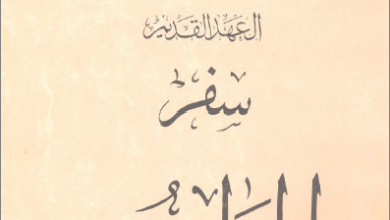 العهد القديم
سفر